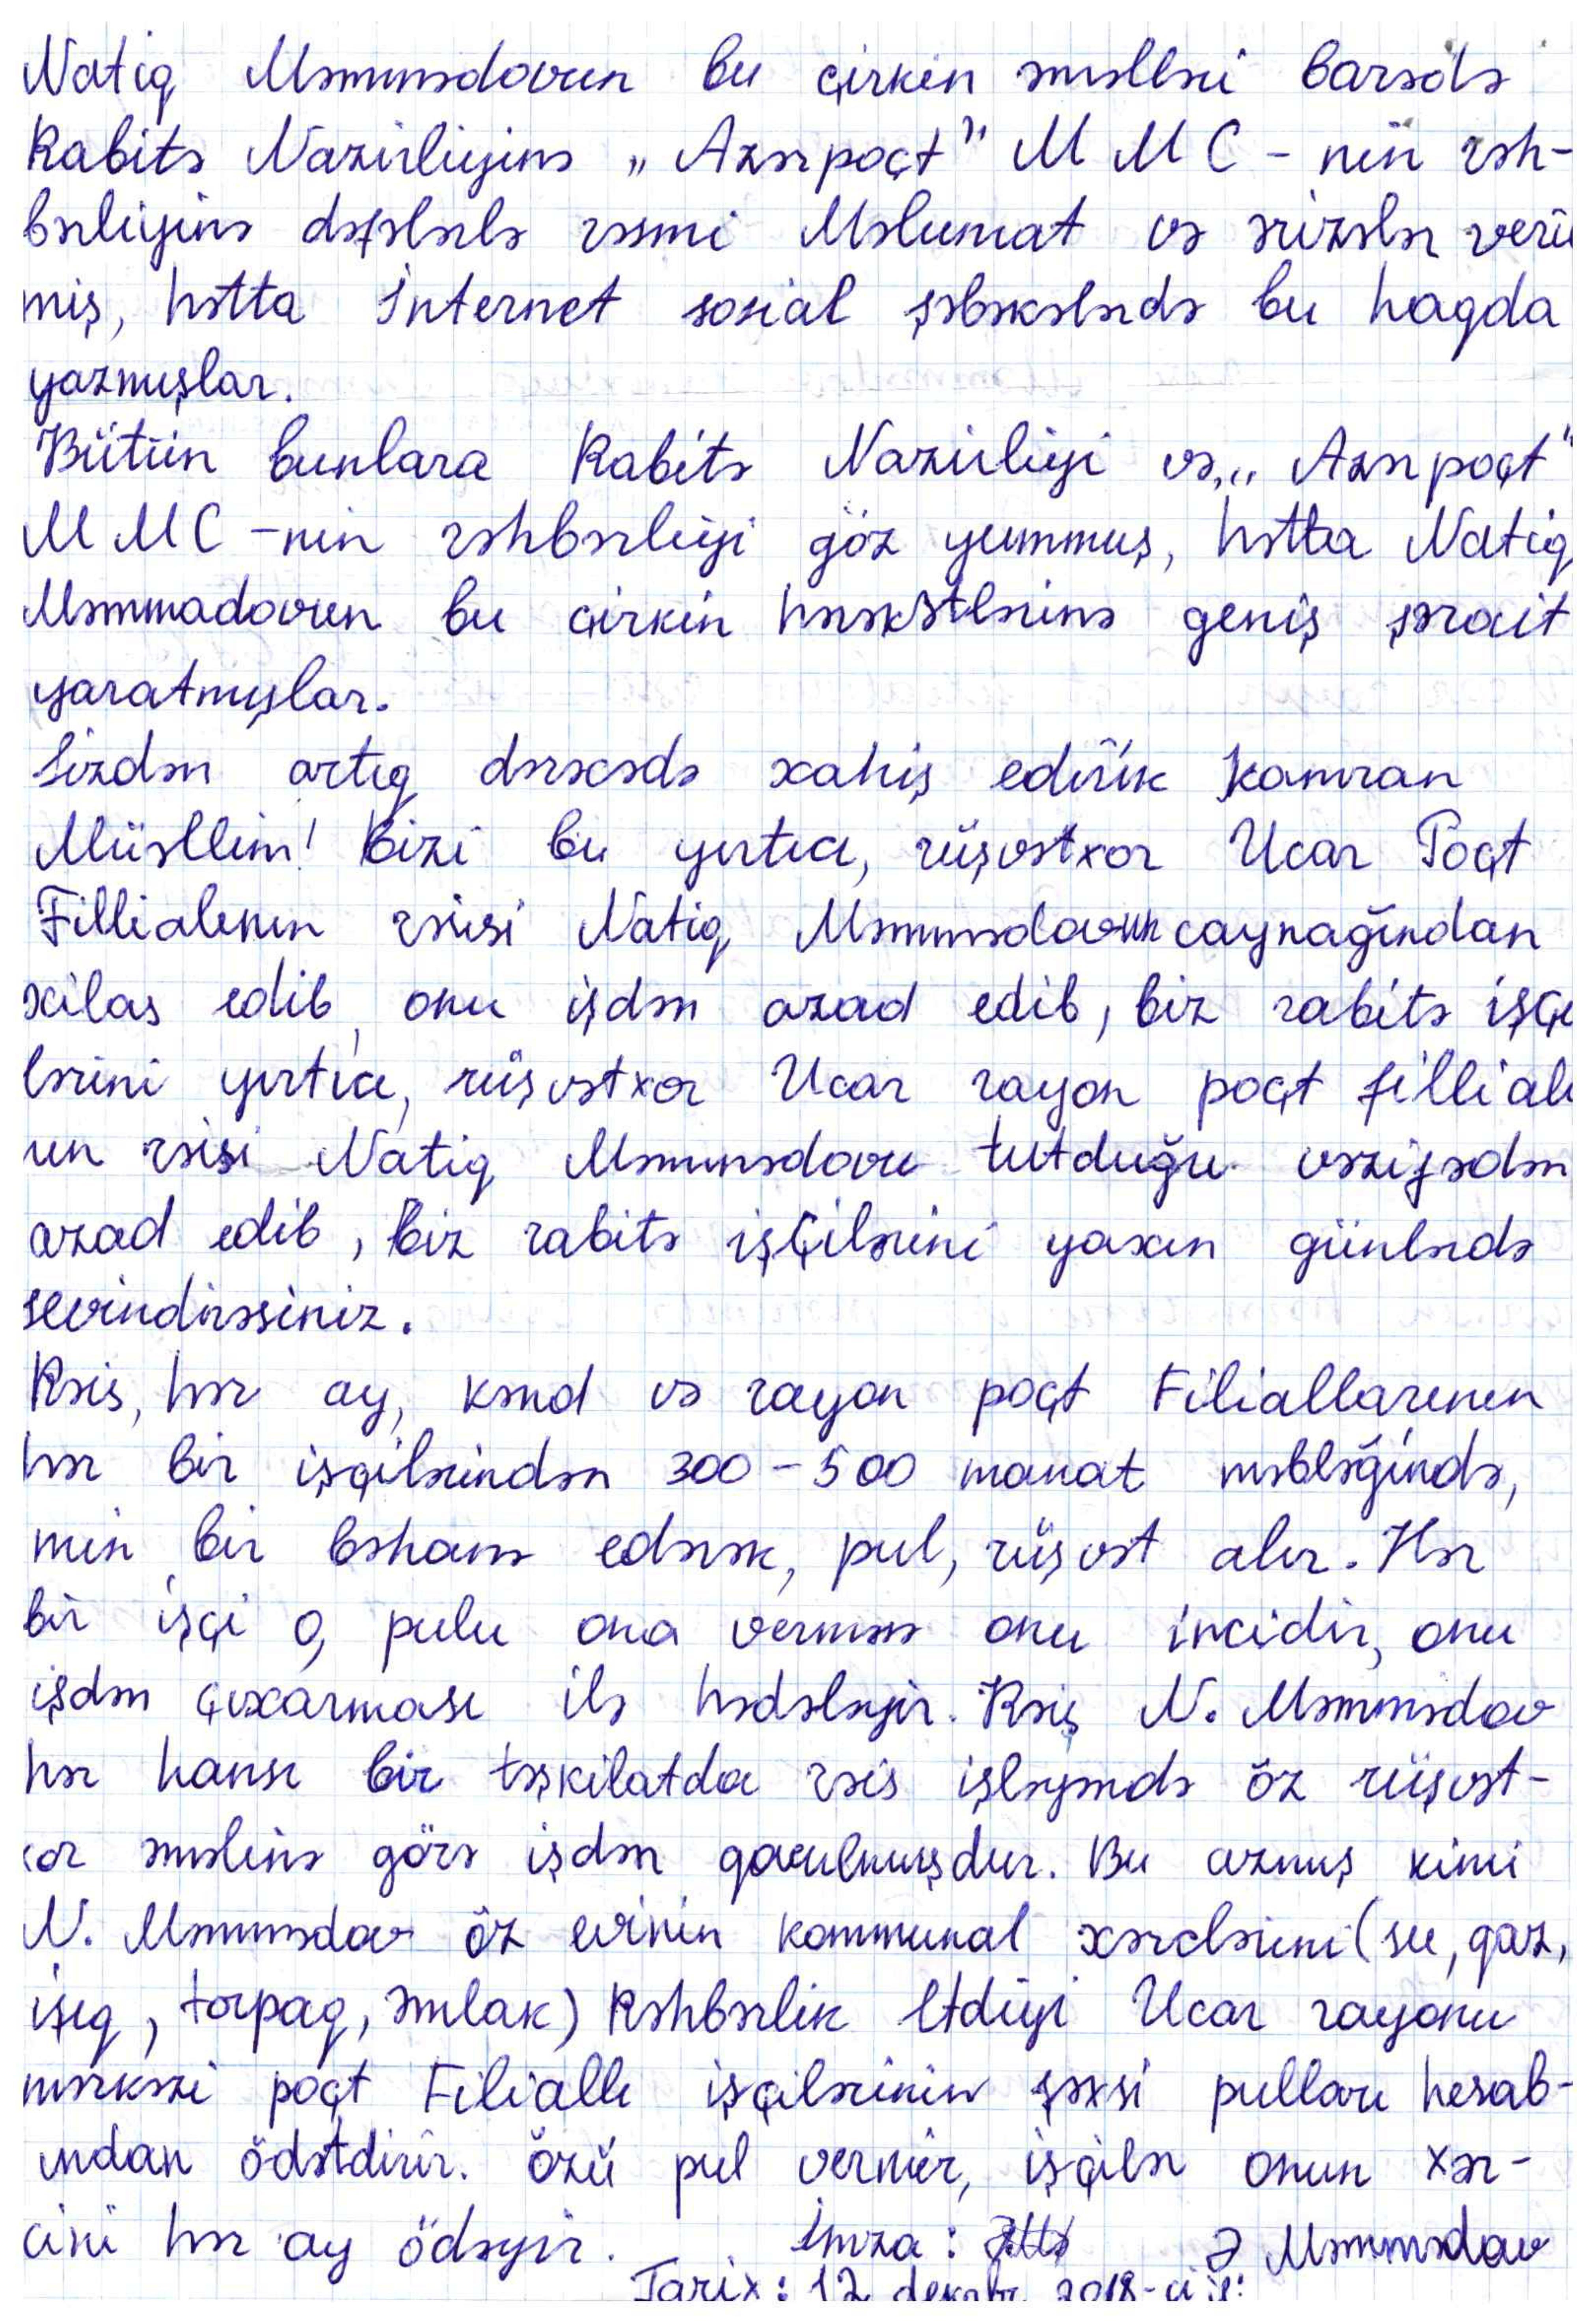 Natiq Məmmədovun bu çirkin əməlləri barədə
Rabitə Nazirliyinə „Azərpoçt" MMC-nin rəh-
bərliyinə dəfələrlə rəsmi Məlumat və ərizələr veril
miş, hətta İnternet sosial şəbəkələrdə bu haqda
yazmışlar.
Bütün bunlara Rabitə Nazirliyi və „Azərpoçt"
MMC-nin rəhbərliyi göz yummuş, hətta Natiq
Məmmadovun bu çirkin hərəkətlərinə geniş şərait
yaratmışlar.
Sizdən artıq dərəcədə xahiş edirik Kamran
Müəllim! Bizi bu yırtıcı, rüşvətxor Ucar Poçt
Fillialının rəisi Natiq Məmmədovun caynağından
xilas edib, onu işdən azad edib, biz rabitə işçi
lərini yırtıcı, rüşvətxor Ucar rayon poçt fillialı
nın rəisi Natiq Məmmədovu tutduğu vəzifədən
azad edib, biz rabitə işçilərini yaxın günlərdə
sevindirəsiniz.
Rəis, hər ay, kənd və rayon poçt Filiallarının
hər bir işçilərindən 300-500 manat məbləğində,
min bir bəhanə edərək, pul, rüşvət alır. Hər
bir işçi o, pulu ona verməsə onu incidir, onu
işdən çıxarması ilə hədələyir. Rəiş N. Məmmədov
hər hansı bir təşkilatda rəis işləyəndə öz rüşvət-
xor əməlinə görə işdən qovulmuşdur. Bu azmış kimi
N. Məmmədov öz evinin kommunal xərclərini (su, qaz,
işıq, torpaq, əmlak) Rəhbərlik etdiyi Ucar rayonu
mərkəzi poçt Filiallı işçilərinin şəxsi pulları hesab-
ından ödətdirir. Özü pul vermir, işçilər onun xər-
cini hər ay ödəyir. İmza: Ə Məmmədov
Tarix: 12 dekabr 2018-ci il.